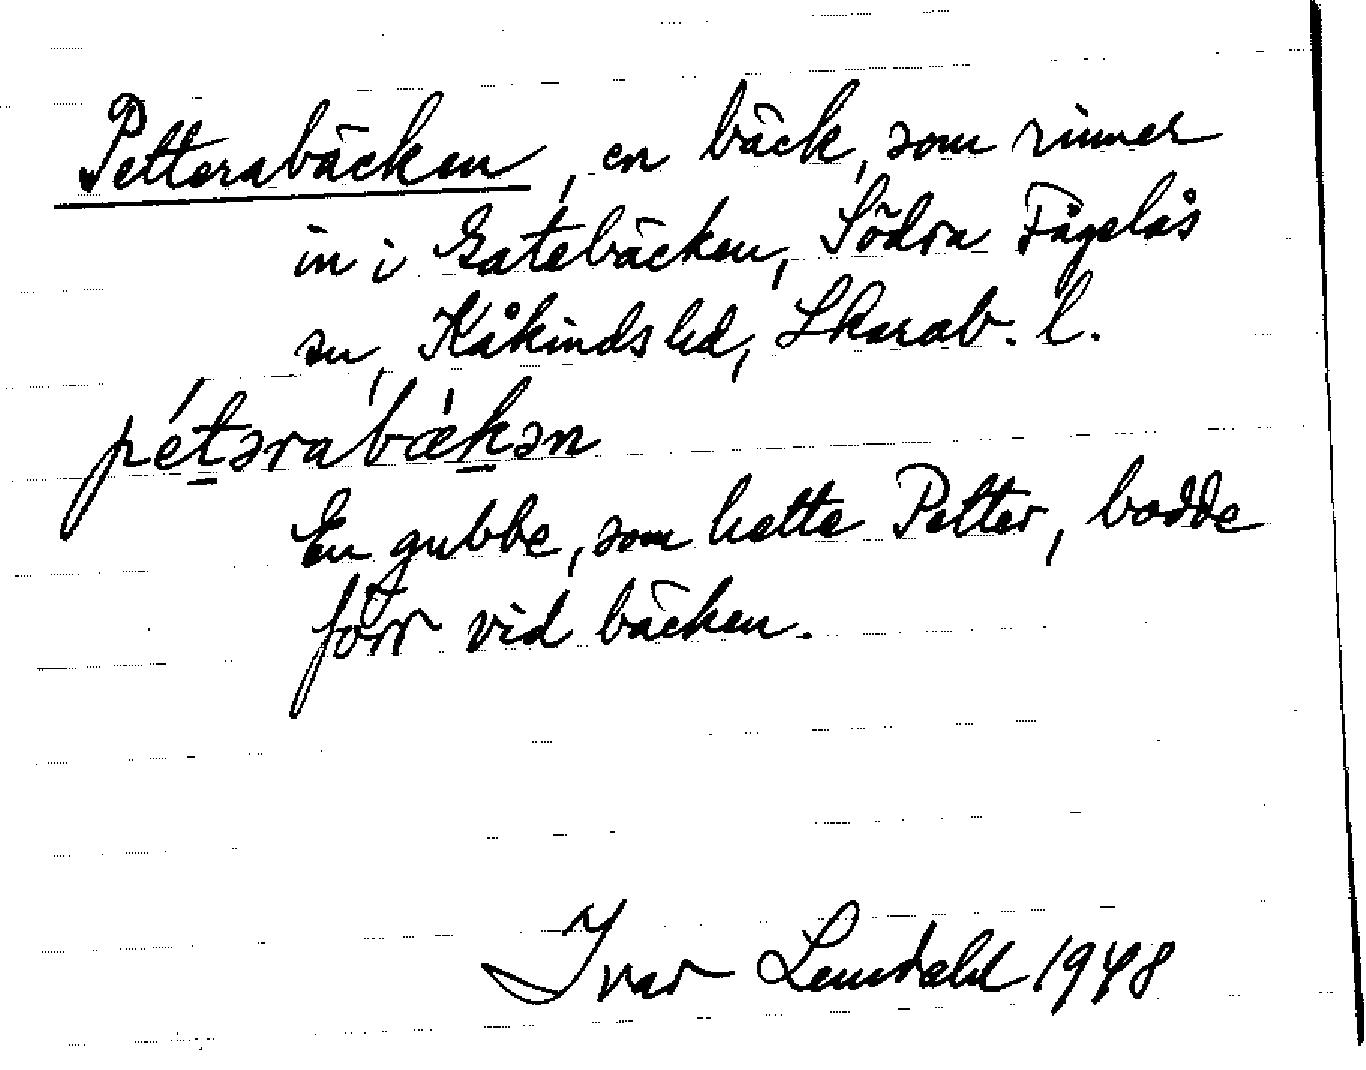 Petterabäcken, en bäck, som rinner
in i Gatebäcken, Södra Fågelås
sn, Kåkinds hd, Skarab. l.
pét̲ərabæ̀k̲ən
En gubbe, som hette Petter, bodde
förr vid bäcken.
Ivar Lundahl 1948